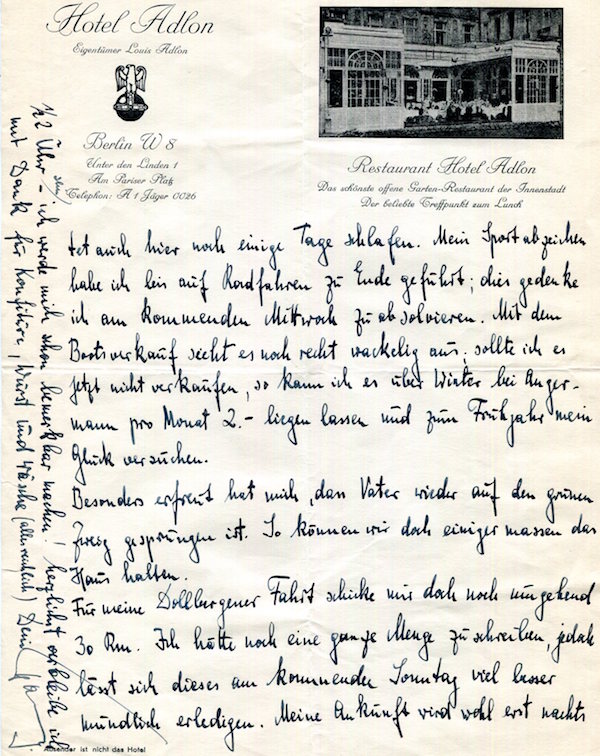 Hotel Adlon
Eigentümer Louis Adlon
Berlin W 8
Unter den Linden 1
Am Pariser Platz
Telephon: A 1 Jäger 0026
Restaurant Hotel Adlon
Das schönste offene Garten-Restaurant der Innenstadt
Der beliebte Treffpunkt zum Lunch
tet auch hier noch einige Tage schlafen. Mein Sportabzeichen
habe ich bis auf Radfahren zu Ende geführt; dies gedenke
ich am kommenden Mittwoch zu absolvieren. Mit dem
Bootsverkauf sieht es noch recht wackelig aus; sollte ich es
jetzt nicht verkaufen, so kann ich es über Winter bei Anger-
mann pro Monat 2.- liegen lassen und zum Frühjahr mein
Glück versuchen.
Besonders erfreut hat mich, dass Vater wieder auf den grünen
Zweig gesprungen ist. So können wir doch einigermassen das
Haus halten.
Für meine Dollbergener Fahrt schicke mir doch noch umgehend
30 Rm. Ich hätte noch eine ganze Menge zu schreiben, jedoch
lässt sich dieses am kommenden Sonntag viel besser
mündlich erledigen. Meine Ankunft wird wohl erst nachts
½2 Uhr sein - ich werde mich schon bemerkbar machen! herzlichst verbleibe ich
mit Dank für Konfitüre, Wurst und Wäsche (alles reichlich) Dein
Absender ist nicht das Hotel